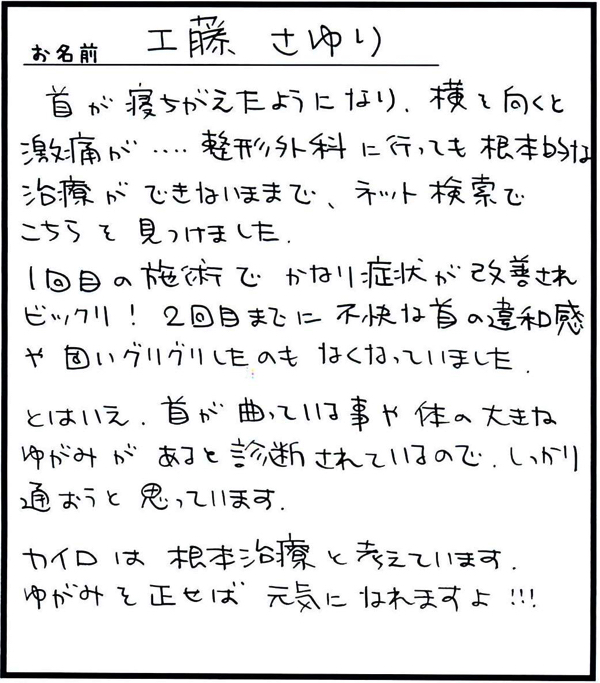 お名前 工藤 さゆり
首が寝ちがえたようになり、横を向くと
激痛が‥‥整形外科に行っても根本的な
治療ができないままで、ネット検索で
こちらを見つけました.
1回目の施術でかなり症状が改善され
ビックリ! 2回目までに不快な首の違和感
や固いグリグリしたのもなくなっていました.
とはいえ、首が曲っている事や体の大きな
ゆがみがあると診断されているので、しっかり
通おうと思っています.
カイロは根本治療と考えています.
ゆがみを正せば元気になれますよ!!!